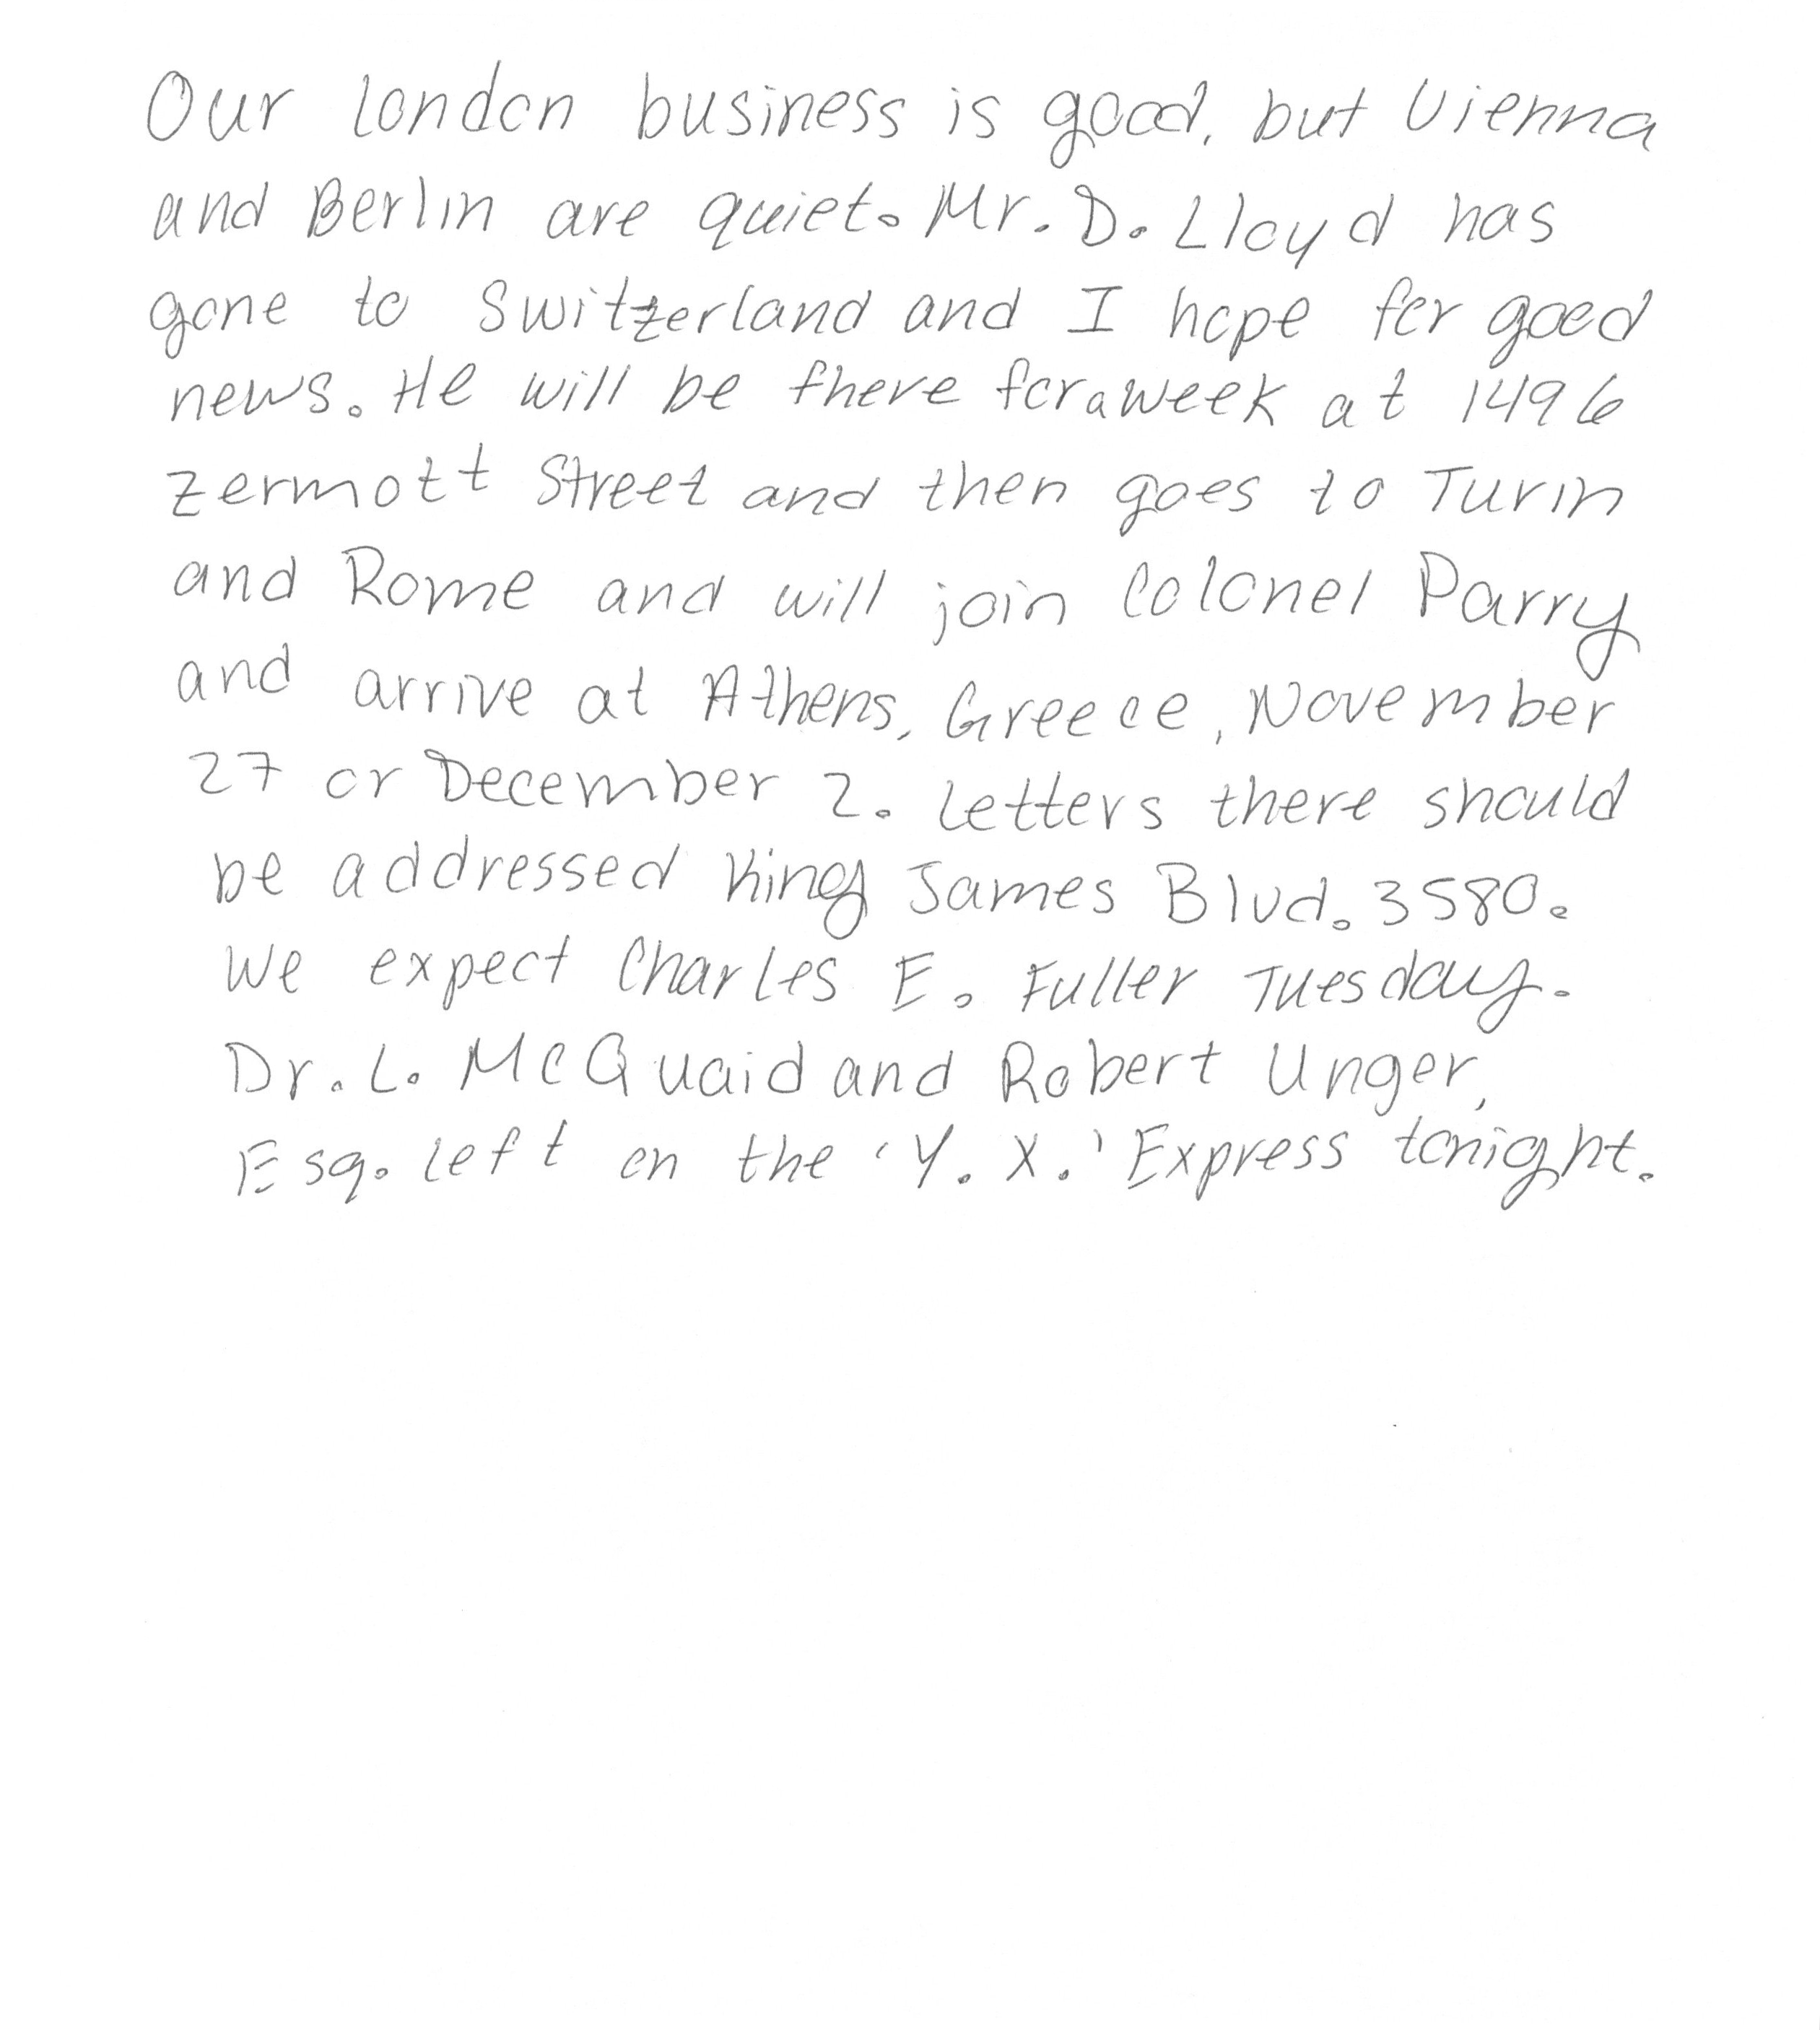 Our London business is good, but Vienna
and Berlin are quiet. Mr. D. Lloyd has
gone to Switzerland and I hope for good
news. He will be there for a week at 1496
Zermott Street and then goes to Turin
and Rome and will join Colonel Parry
and arrive at Athens, Greece, November
27 or December 2. Letters there should
be addressed King James Blvd. 3580.
We expect Charles E. Fuller Tuesday.
Dr. L. McQuaid and Robert Unger,
Esq. left on the 'Y. X.' Express tonight.